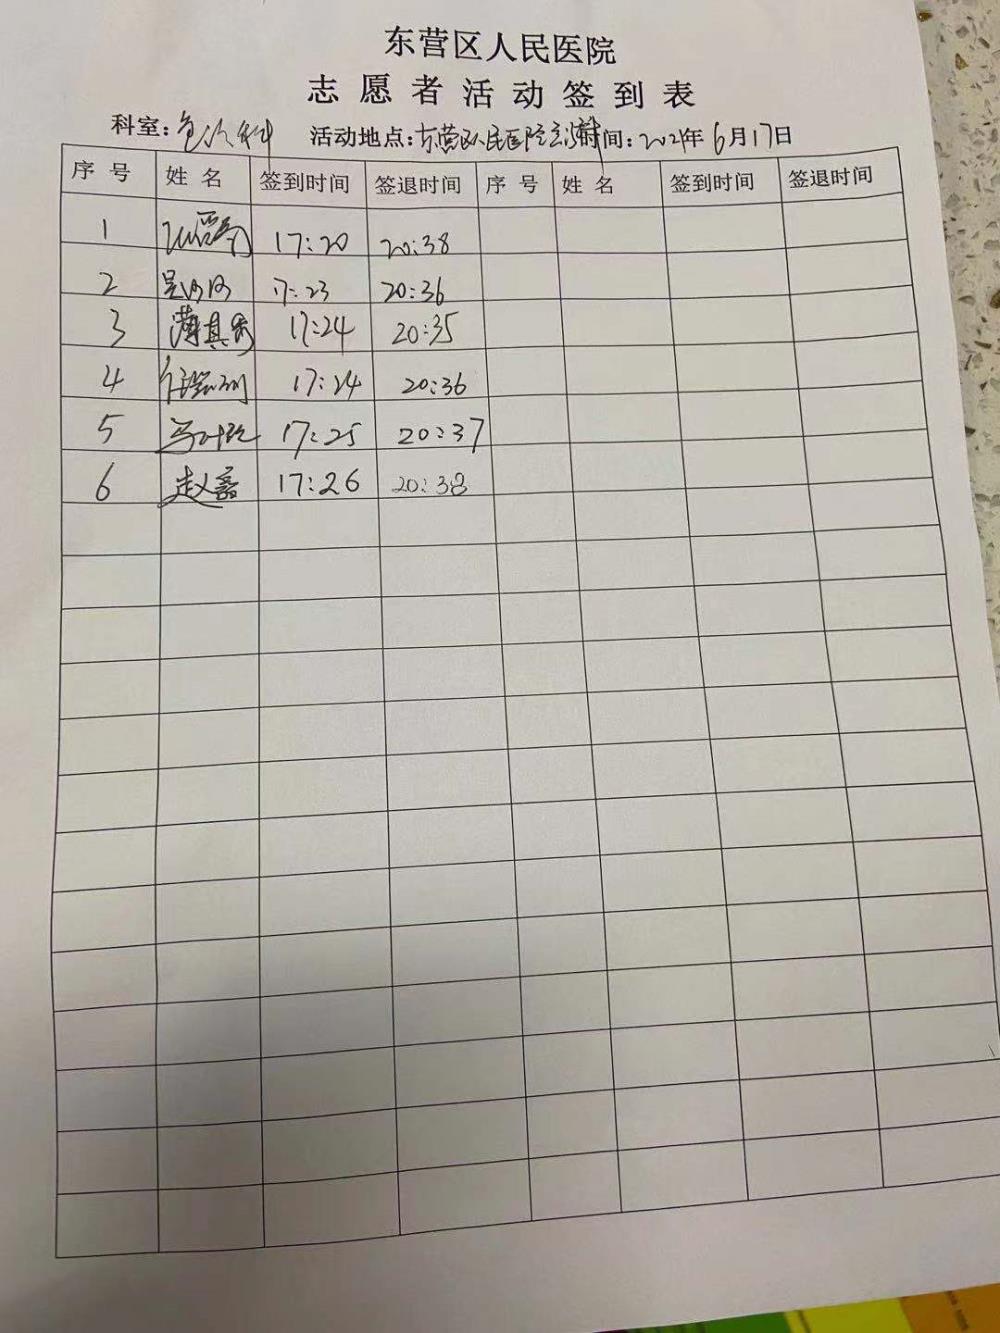 东营区人民医院
志愿者活动签到表
科室：急诊科 活动地点：东营区人民医院 时间：2021年6月17日
序号 姓名 签到时间 签退时间 序号 姓名 签到时间 签退时间
1 17:20 20:38
2 17:23 20:36
3 薄其秀 17:24 20:35
4 17:24 20:36
5 17:25 20:37
6 赵磊 17:26 20:38